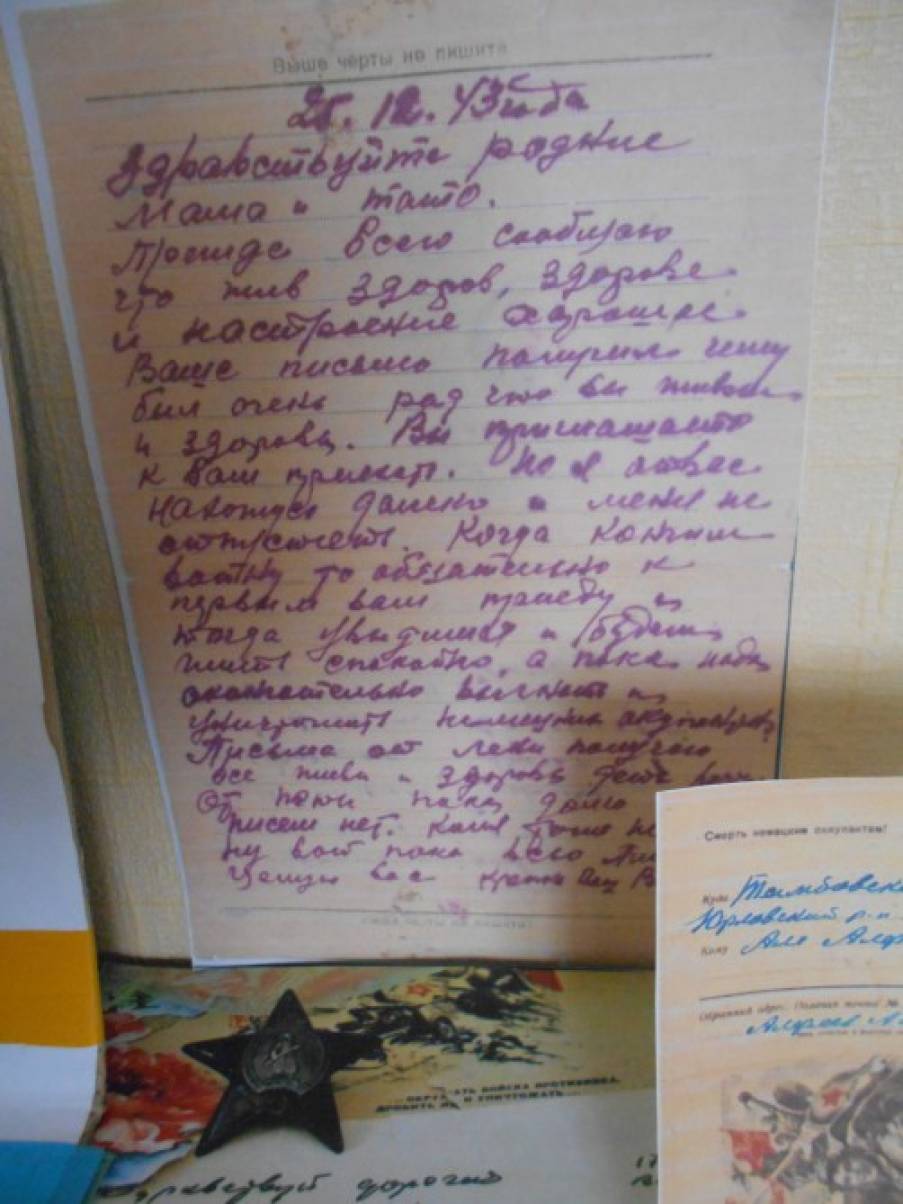 Выше черты не пишите
25.12.43 года
Здравствуйте родние
Мама и тато.
Прежде всего сообщаю
что жив здоров, здорове
и настроение харошее.
Ваше письмо получил чему
был очень рад что ви живы
и здоровы. Вы приглашаите
к вам приехать. Но я
нахожусь далеко и меня не
отпустят. Когда кончим
войну то обязательно к
первым вам приеду и
тогда увидимся и будем
жить спокойно, а пока надо
окончательно выгнать и
уничтожить немецких окупантов.
Письма от получаю
все живи и здорови
От пока долго
писем нет. Коля тоже не
ну вот пока всего
Целую вас крепко Ваш В
Смерть немецким оккупантам!
Куда Тамбовска
Юрловский р-н
Кому
Обратный адрес: Полевая почта №
ать войска противника,
дробить их и уничтожать...
здравствуй дорогий
17